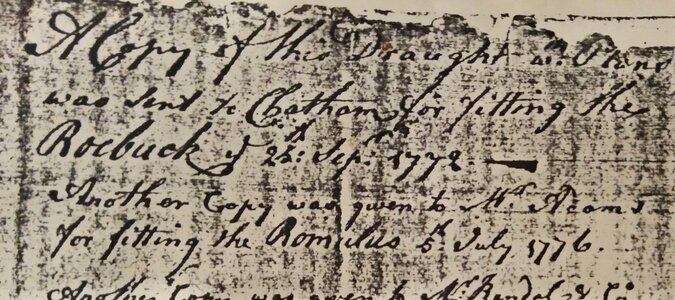 A Copy of this Draught
was sent to Chatham for fitting the
Roebuck ye 24th: Sepr. 1772.
Another Copy was given to Mr. Adams
for fitting the Romulus 5th July 1776.
Another Copy was given to Mr.